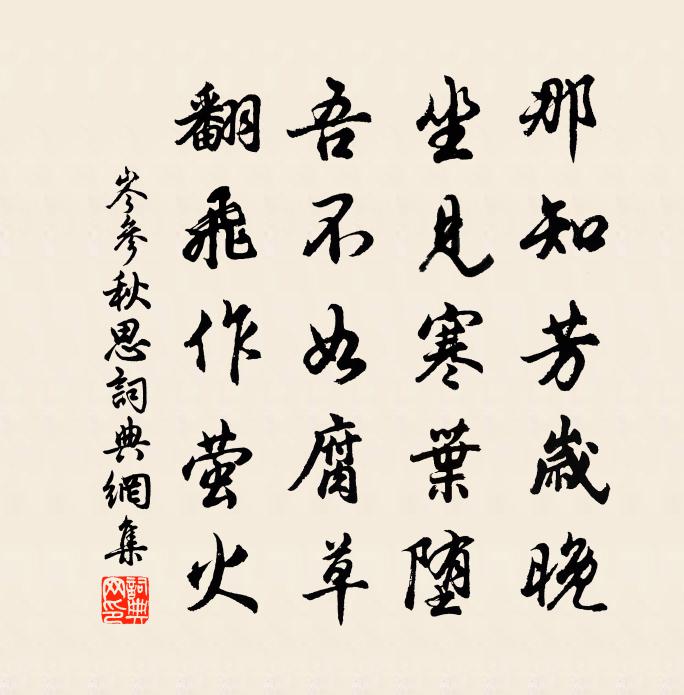 那知芳歲晚
坐見寒葉墮
吾不如腐草
翻飛作萤火
岑參秋思詞典網集
詞典网印